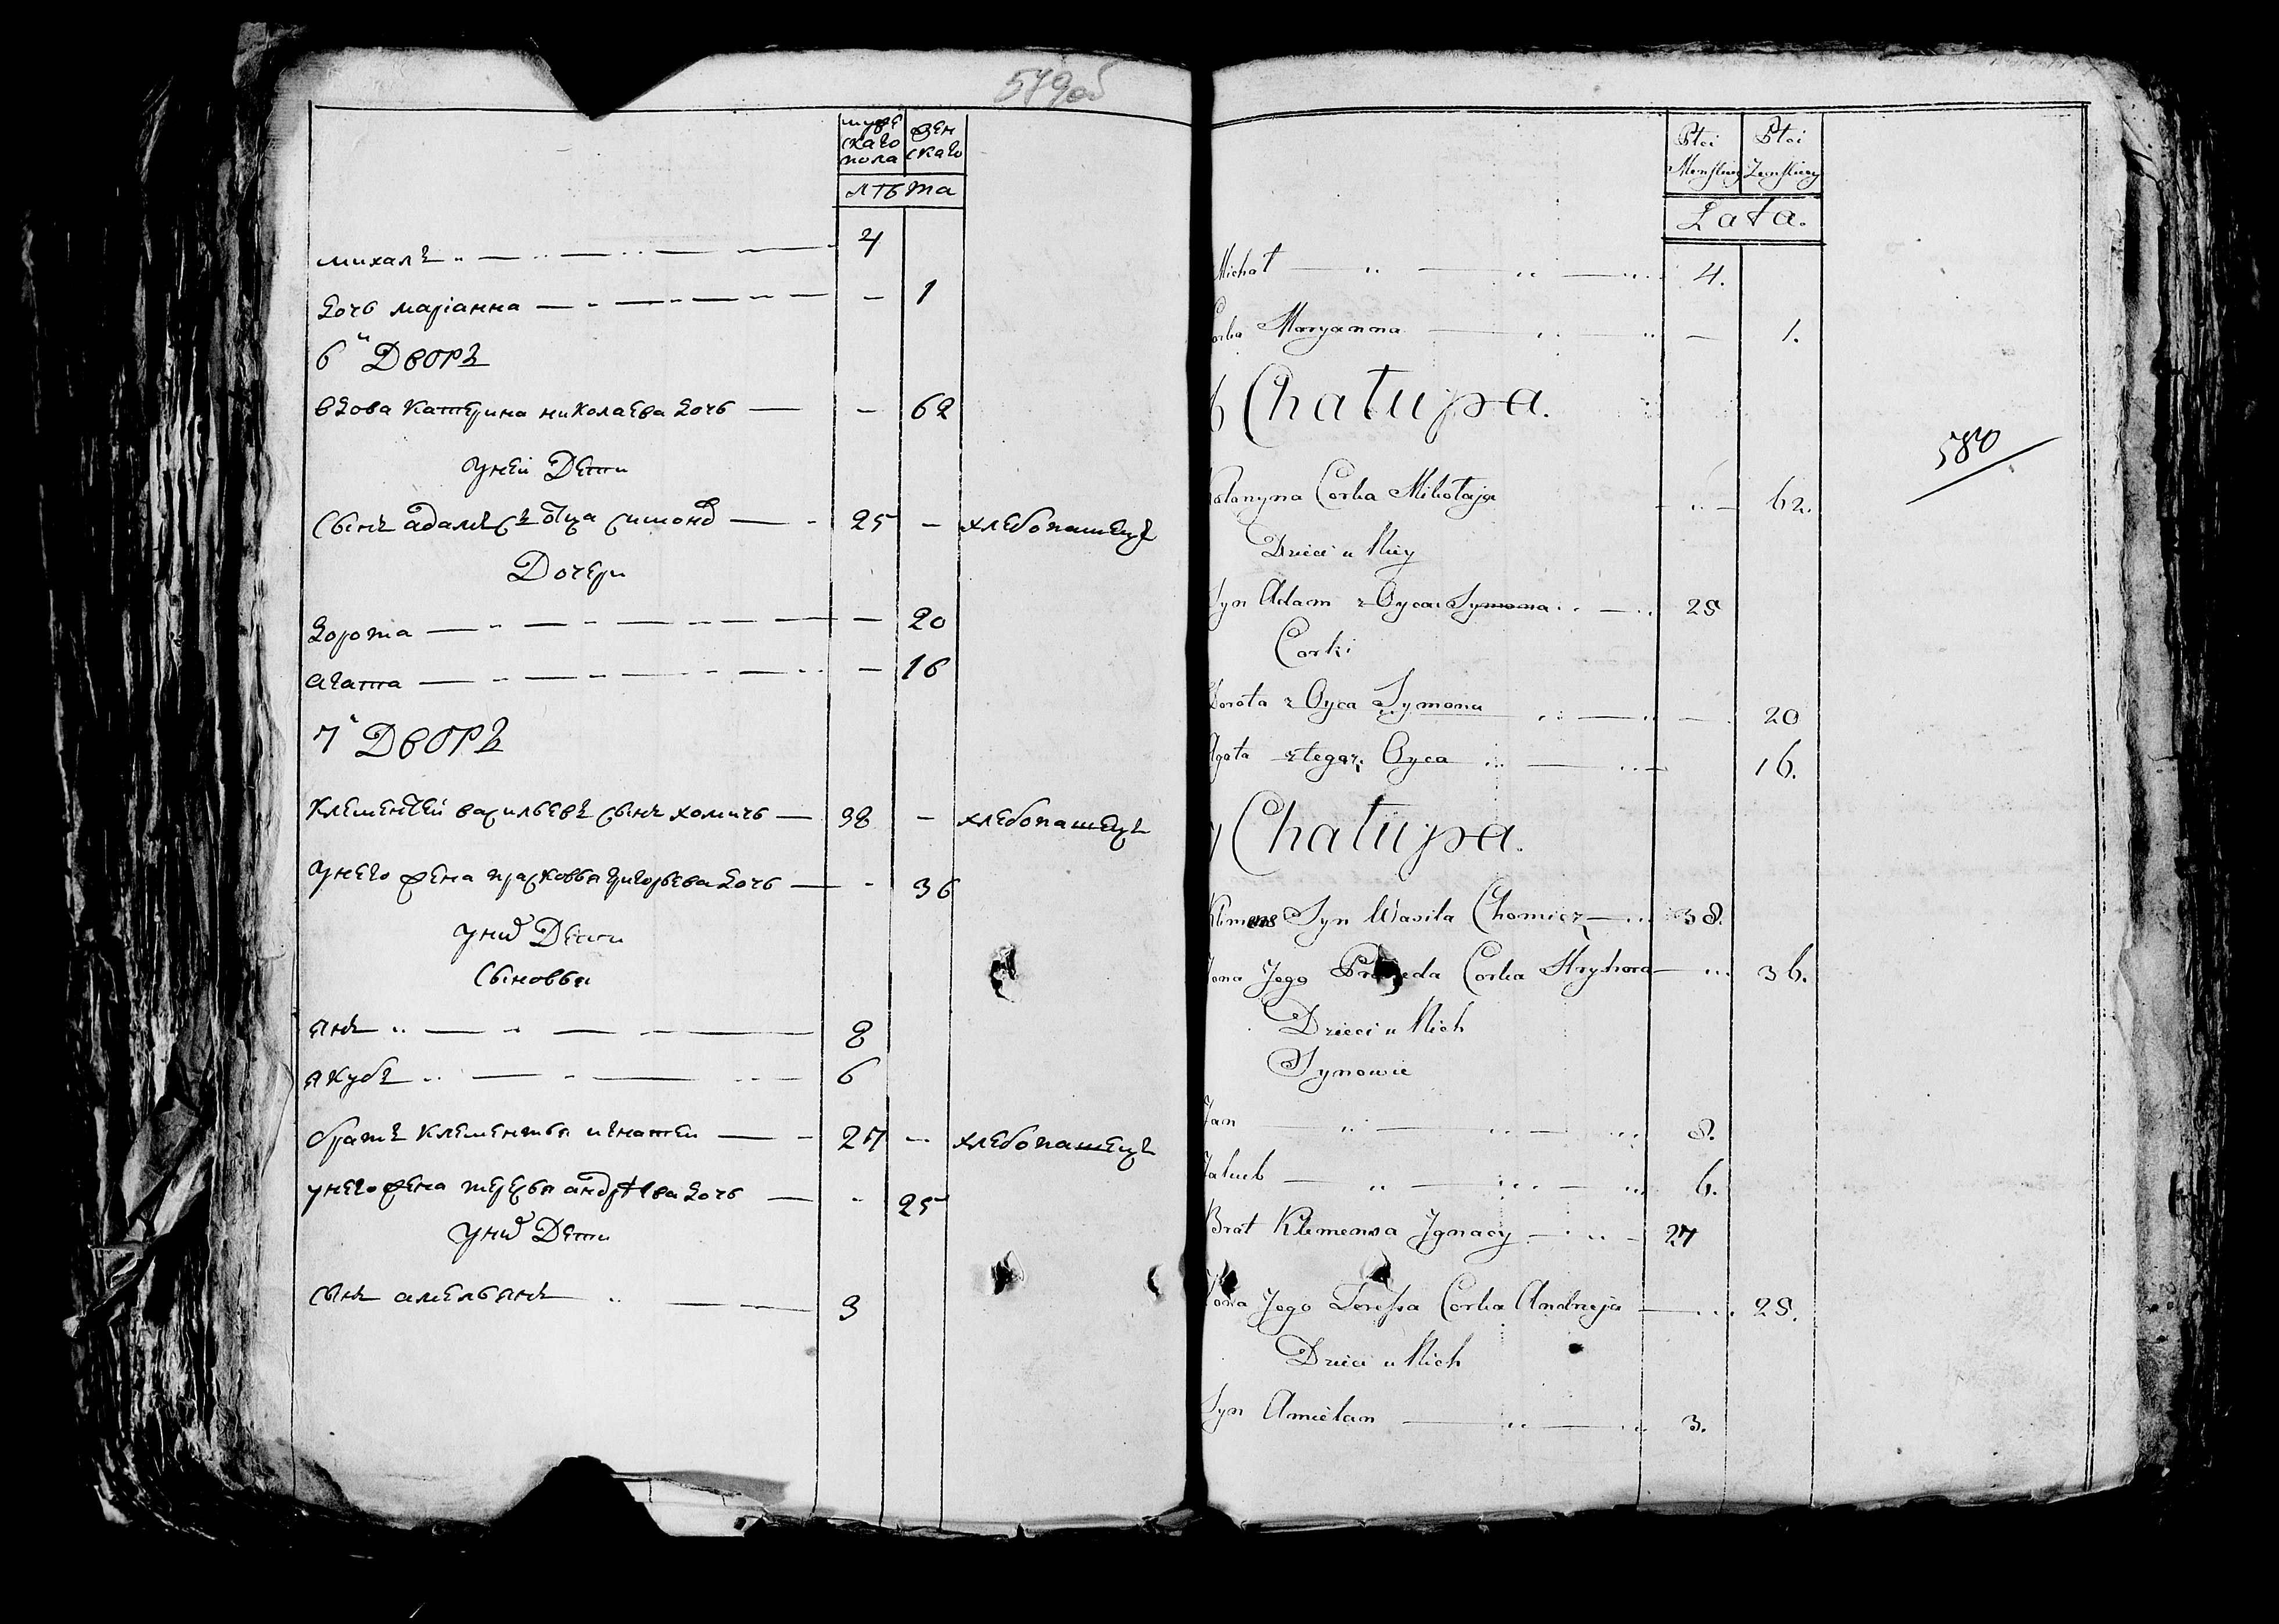 579об
мужескаго пола
женскаго
лѣта
михалъ 4
дочь маріанна — 1
6й Дворъ
вдова катерина николаева дочь — 62
у ней Дети
сынъ адамъ съ отца симона 25 — хлебопашецъ
Дочери
дорота — 20
агата — 16
7й Дворъ
клементей васильевъ сынъ хомичь — 38 — хлебопашецъ
у него жена прасковья григорьева дочь — 36
у них Дети
Сыновья
янъ 8
якубъ 6
братъ клементья игнатей 27 — хлебопашецъ
у него жена тересья андрѣева дочь — 25
у них Дети
сынъ амельянъ 3
Płci Męskiey
Płci Żeńskiey
Lata.
Michał 4.
Corka Maryanna — 1.
6 Chałupa.
580
Katarzyna Corka Mikołaja — 62.
Dzieci u Niey
Syn Adam z Oyca Symona 25
Corki
Dorota z Oyca Symona — 20
Agata z tegoż Oyca 16.
7 Chałupa.
Klimens Syn Wasila Chomicz 38.
Żona Jego Praxeda Corka Hryhora 36.
Dzieci u Nich
Synowie
Jan 8.
Jakub 6.
Brat Klemensa Ignacy 27
Żona Jego Teressa Corka Andrzeja 25.
Dzieci u Nich
Syn Amielan 3.